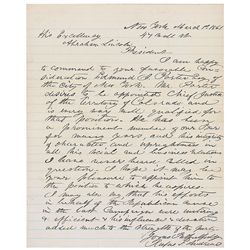 New York March 1st 1861
47 Wall St
His Excellency
Abraham Lincoln
President
I am happy
to commend to your favorable con-
sideration Edmund J. Porter Esq of
the City of New York. Mr. Porter
desires to be appointed Chief Justice
of the territory of Colorado and
is very well qualified for
that position. He has been
a prominent member of our Bar
for many years, and his integrity
of character and uprightness in
all his social and business relations
I have never heard called in
question. I hope it may be
your pleasure to appoint him to
the position to which he aspires.
I may also say that his efforts
in behalf of the Republican cause
in the last Campaign were untiring
& efficient & his influence & exertions
added much to the strength of the party